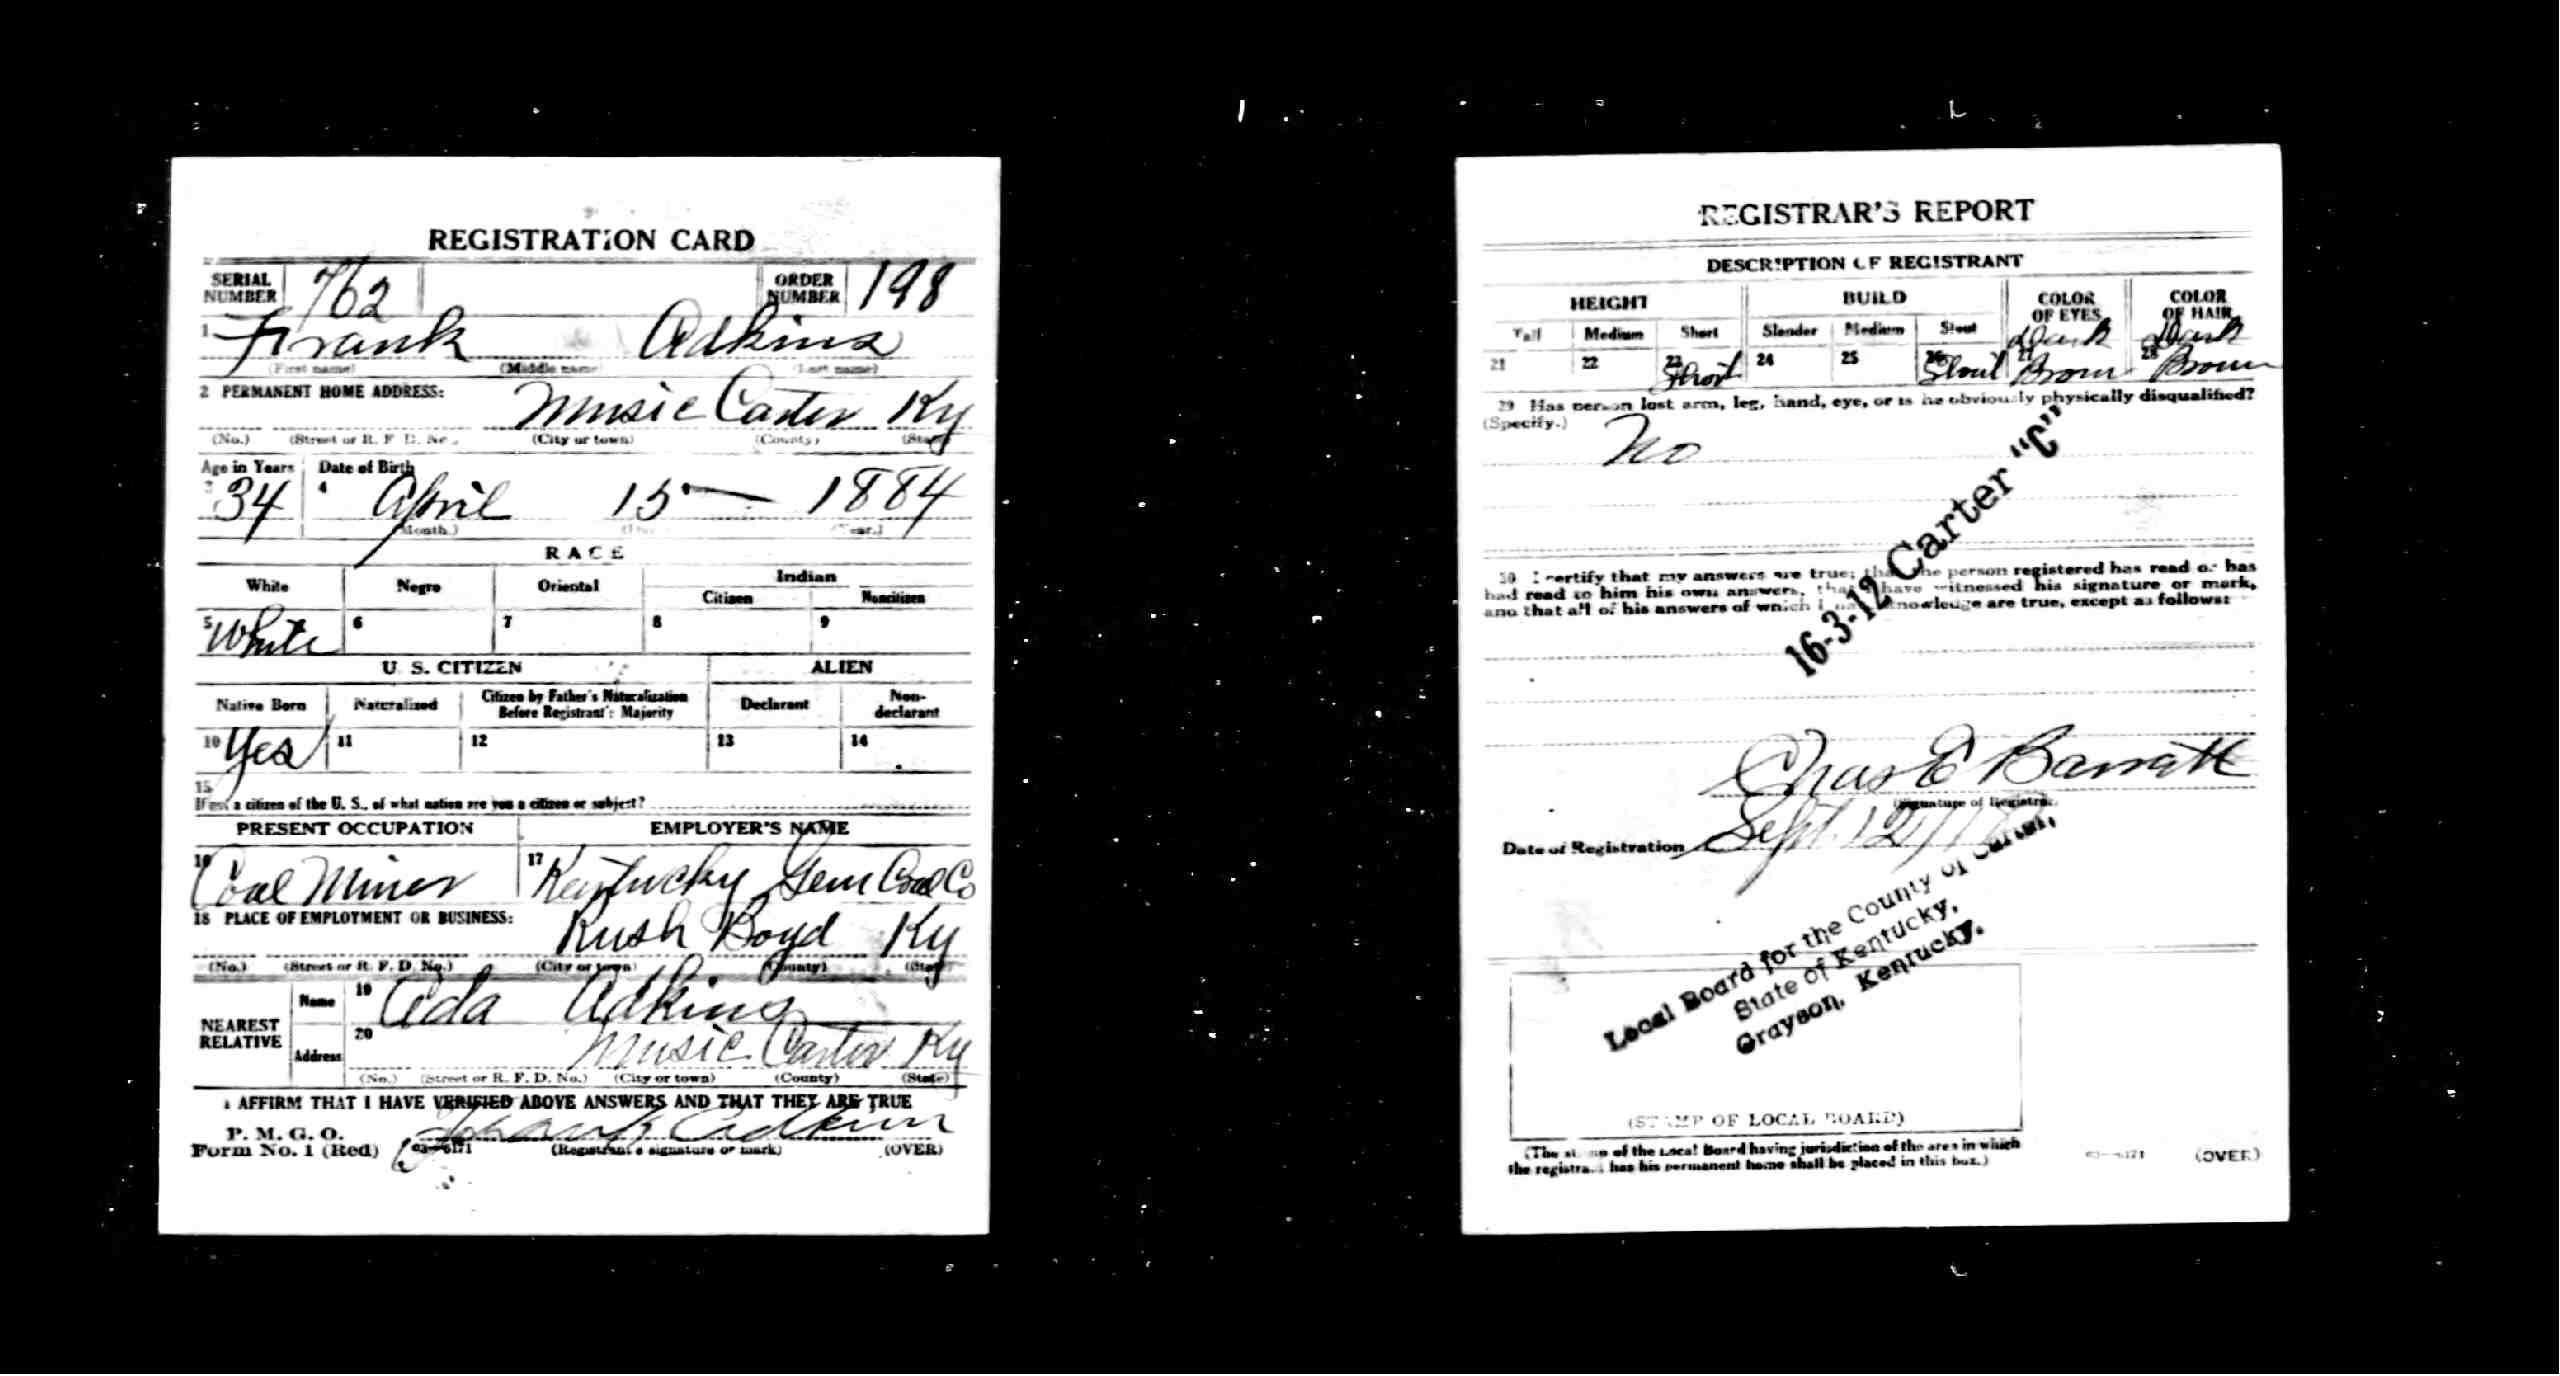 REGISTRATION CARD
SERIAL NUMBER 762 ORDER NUMBER 198
1 Frank Adkins
(First name) (Middle name) (Last name)
2 PERMANENT HOME ADDRESS: Music Carter Ky
(No.) (Street or R. F. D. No.) (City or town) (County) (State)
Age in Years Date of Birth
3 34 4 April 15 — 1884
(Month.) (Day.) (Year.)
RACE
White Negro Oriental Indian
Citizen Noncitizen
5 White 6 7 8 9
U. S. CITIZEN ALIEN
Native Born Naturalized Citizen by Father's Naturalization Before Registrant's Majority Declarant Non-declarant
10 Yes 11 12 13 14
15
If not a citizen of the U. S., of what nation are you a citizen or subject?
PRESENT OCCUPATION EMPLOYER'S NAME
16 Coal Miner 17 Kentucky Gem Coal Co
18 PLACE OF EMPLOYMENT OR BUSINESS: Rush Boyd Ky
(No.) (Street or R. F. D. No.) (City or town) (County) (State)
NEAREST RELATIVE Name 19 Ada Adkins
Address 20 Music Carter Ky
(No.) (Street or R. F. D. No.) (City or town) (County) (State)
I AFFIRM THAT I HAVE VERIFIED ABOVE ANSWERS AND THAT THEY ARE TRUE
P. M. G. O.
Form No. 1 (Red) 03—6171 (Registrant's signature or mark) (OVER)
REGISTRAR'S REPORT
DESCRIPTION OF REGISTRANT
HEIGHT BUILD COLOR OF EYES COLOR OF HAIR
Tall Medium Short Slender Medium Stout
21 22 23 Short 24 25 26 Stout 27 Dark Brown 28 Dark Brown
29 Has person lost arm, leg, hand, eye, or is he obviously physically disqualified?
(Specify.) No
16-3-12 Carter "C"
30 I certify that my answers are true; that the person registered has read or has
had read to him his own answers, that I have witnessed his signature or mark,
and that all of his answers of which I have knowledge are true, except as follows:
Chas E
(Signature of Registrar.
Date of Registration Sept. 12/18
Local Board for the County of Carter,
State of Kentucky,
Grayson, Kentucky.
(STAMP OF LOCAL BOARD)
(The stamp of the Local Board having jurisdiction of the area in which
the registrant has his permanent home shall be placed in this box.)
03—6171 (OVER)